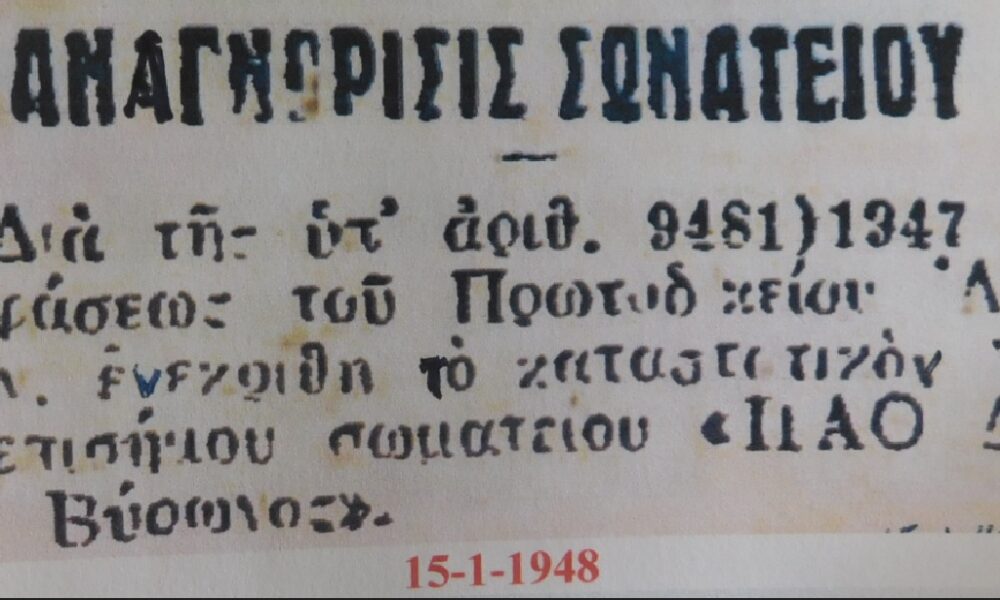 ΑΝΑΓΝΩΡΙΣΙΣ ΣΩΜΑΤΕΙΟΥ
Διὰ τῆς ὑπ' ἀριθ. 9481)1347
τοῦ Πρωτοδικείου
ἐνεκρίθη τὸ καταστατικὸν
σωματείου «ΠΑΟ
Βύρωνος».
15-1-1948